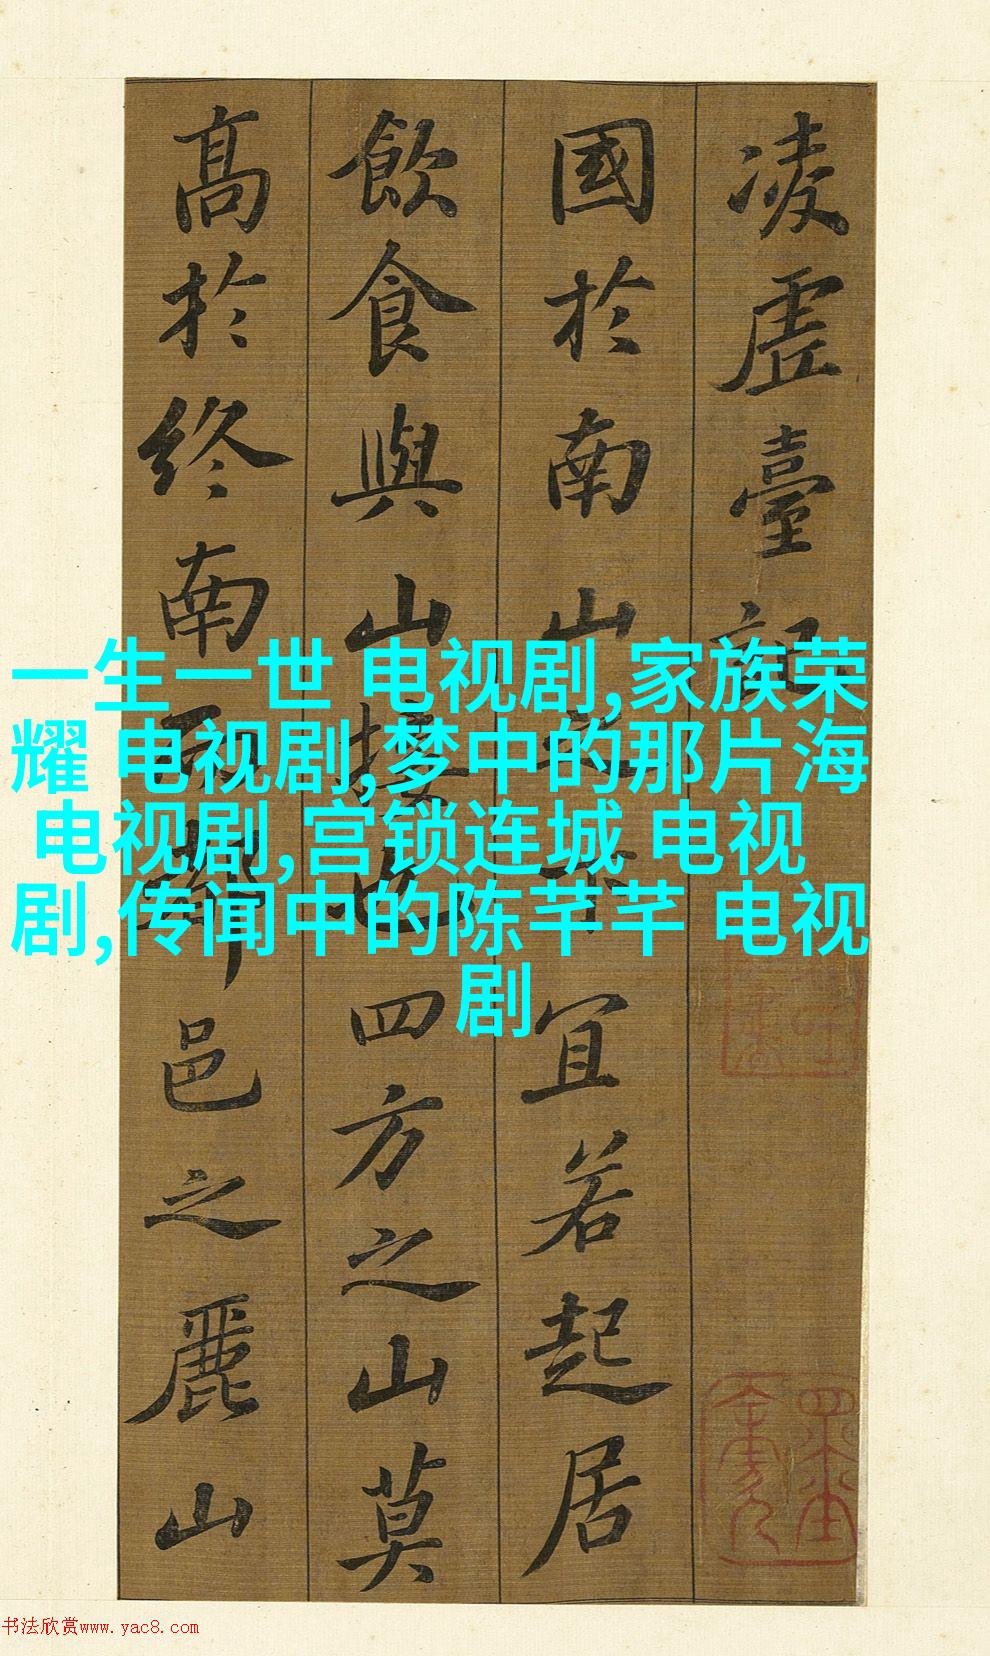 凌虗臺記
國於南山之下宜若起居
飲食與山接也四方之山莫
高於終南而都邑之麗山
一生一世 电视剧,家族荣
耀 电视剧,梦中的那片海
电视剧,宫锁连城 电视
剧,传闻中的陈芊芊 电视
剧
书法欣赏www.yac8.com